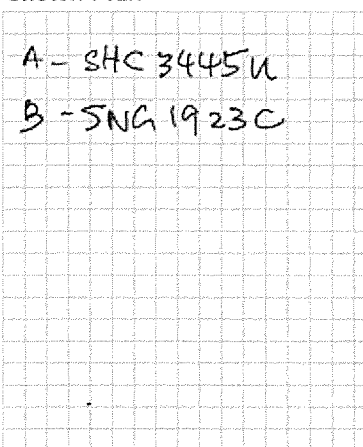 A - SHC 3445U
B - SNG 1923C